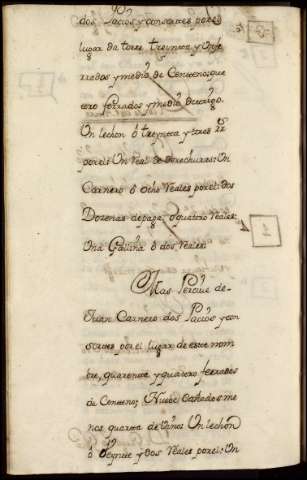 dos Pacios y consortes por el
lugar da torre treynta y Un fe
rrados y medio de Centeno; qua
tro ferrados y medio de trigo.
Un lechon ô treynta y tres Rs
por el: Un Real de derechuras: Un
Carnero ô ocho Reales por el: dos
Dozenas de paja, ô quatro Reales:
Una Gallina ô dos Reales
Mas Percive de
Juan Carnero dos Pacios y con
sortes por el lugar de este nom
bre, quarenta y quatro ferrados
de Centeno; Nuebe Cañados me
nos quarta de Vino: Un lechon
ô Veynte y dos Reales por el: Un